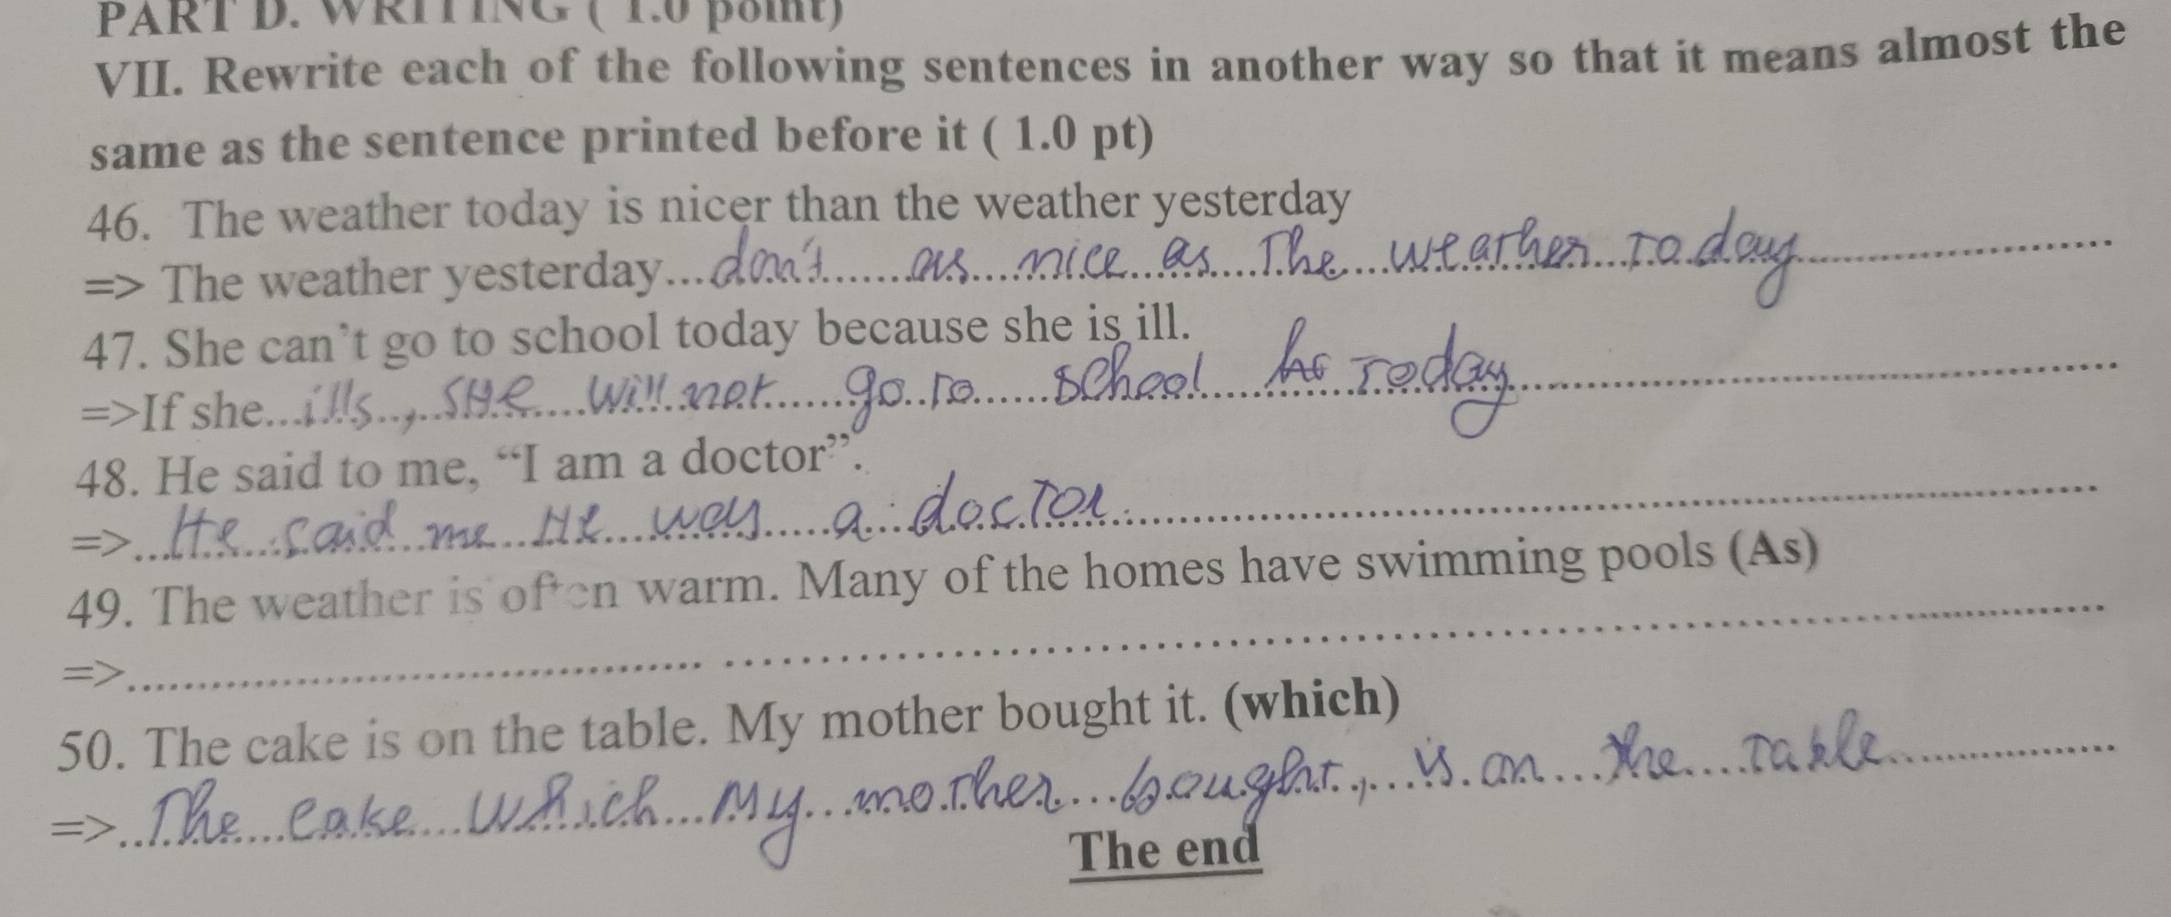 PART D. WRITING ( 1.0 point)
VII. Rewrite each of the following sentences in another way so that it means almost the
same as the sentence printed before it ( 1.0 pt)
46. The weather today is nicer than the weather yesterday
=> The weather yesterday...don't......as...nice...as...The...weather...today..........
47. She can't go to school today because she is ill.
=>If she...ills..,..she....will not......go to......school....today..........
48. He said to me, “I am a doctor”.
=>...He...said...me...He...was.....a...doctor..........
49. The weather is often warm. Many of the homes have swimming pools (As)
=>..........
50. The cake is on the table. My mother bought it. (which)
=>...The...cake...which...My...mother...bought.,...is.on...the....table..........
The end